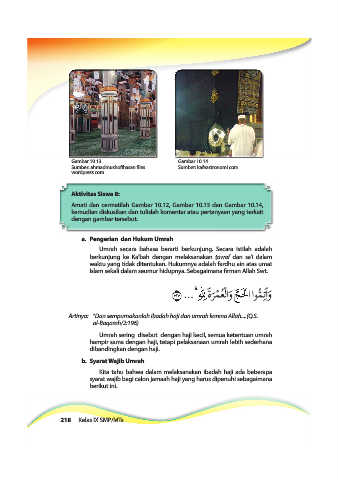 Gambar 10.13
Sumber: ahmadmushofihasan.files
wordpress.com
Gambar 10.14
Sumber: kafeastronomi.com
Aktivitas Siswa 8:
Amati dan cermatilah Gambar 10.12, Gambar 10.13 dan Gambar 10.14,
kemudian diskusikan dan tulislah komentar atau pertanyaan yang terkait
dengan gambar tersebut.
a. Pengertian dan Hukum Umrah
Umrah secara bahasa berarti berkunjung. Secara istilah adalah
berkunjung ke Ka'bah dengan melaksanakan ṭawaf dan sa'i dalam
waktu yang tidak ditentukan. Hukumnya adalah fardhu ain atas umat
Islam sekali dalam seumur hidupnya. Sebagaimana firman Allah Swt.
وَأَتِمُّوا الْحَجَّ وَالْعُمْرَةَ لِلَّهِ ...
Artinya: "Dan sempurnakanlah ibadah haji dan umrah karena Allah... (Q.S.
al-Baqarah/2:196)
Umrah sering disebut dengan haji kecil, semua ketentuan umrah
hampir sama dengan haji, tetapi pelaksanaan umrah lebih sederhana
dibandingkan dengan haji.
b. Syarat Wajib Umrah
Kita tahu bahwa dalam melaksanakan ibadah haji ada beberapa
syarat wajib bagi calon jamaah haji yang harus dipenuhi sebagaimana
berikut ini.
218 Kelas IX SMP/MTs